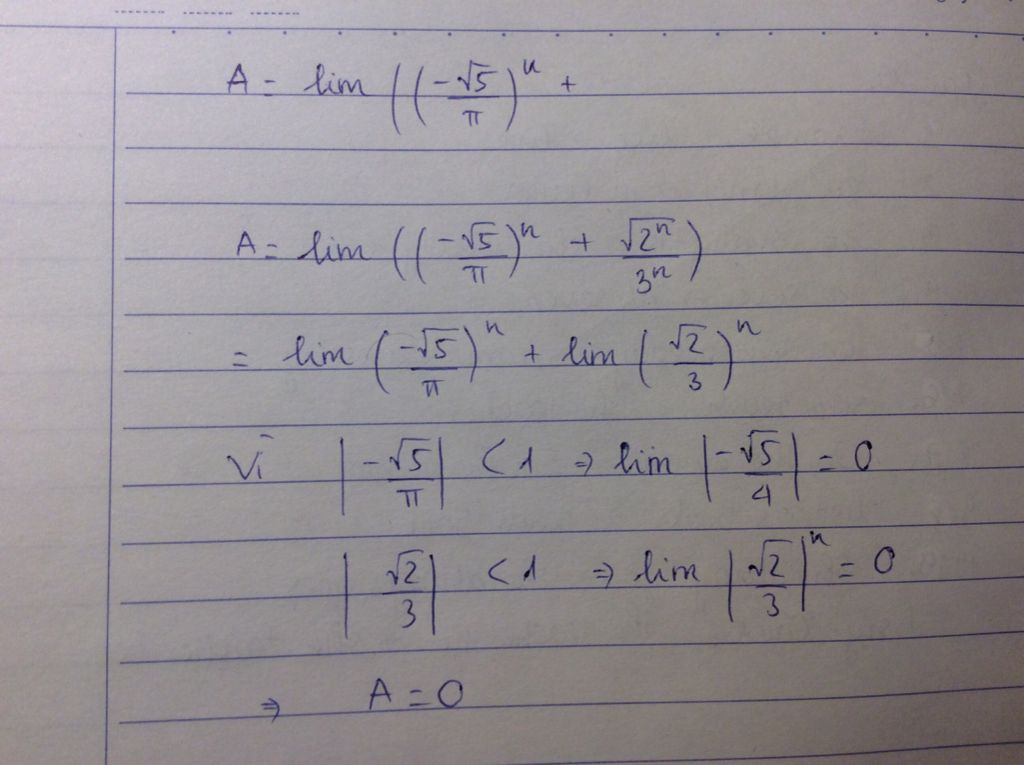 A = lim ((-√5/π)ⁿ +
A = lim ((-√5/π)ⁿ + √2ⁿ/3ⁿ)
= lim (-√5/π)ⁿ + lim (√2/3)ⁿ
Vì |-√5/π| < 1 ⇒ lim |-√5/4| = 0
|√2/3| < 1 ⇒ lim |√2/3|ⁿ = 0
⇒ A = 0